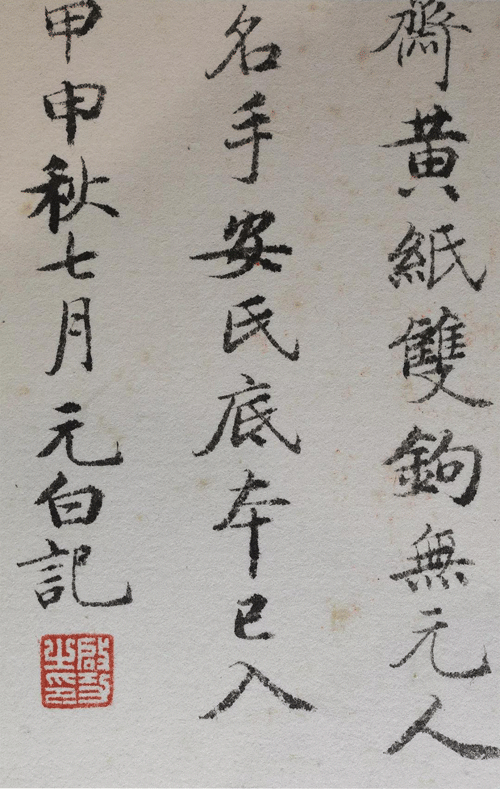 齋黄紙雙鉤無元人
名手安氏底本已入
甲申秋七月元白記
啟功之印